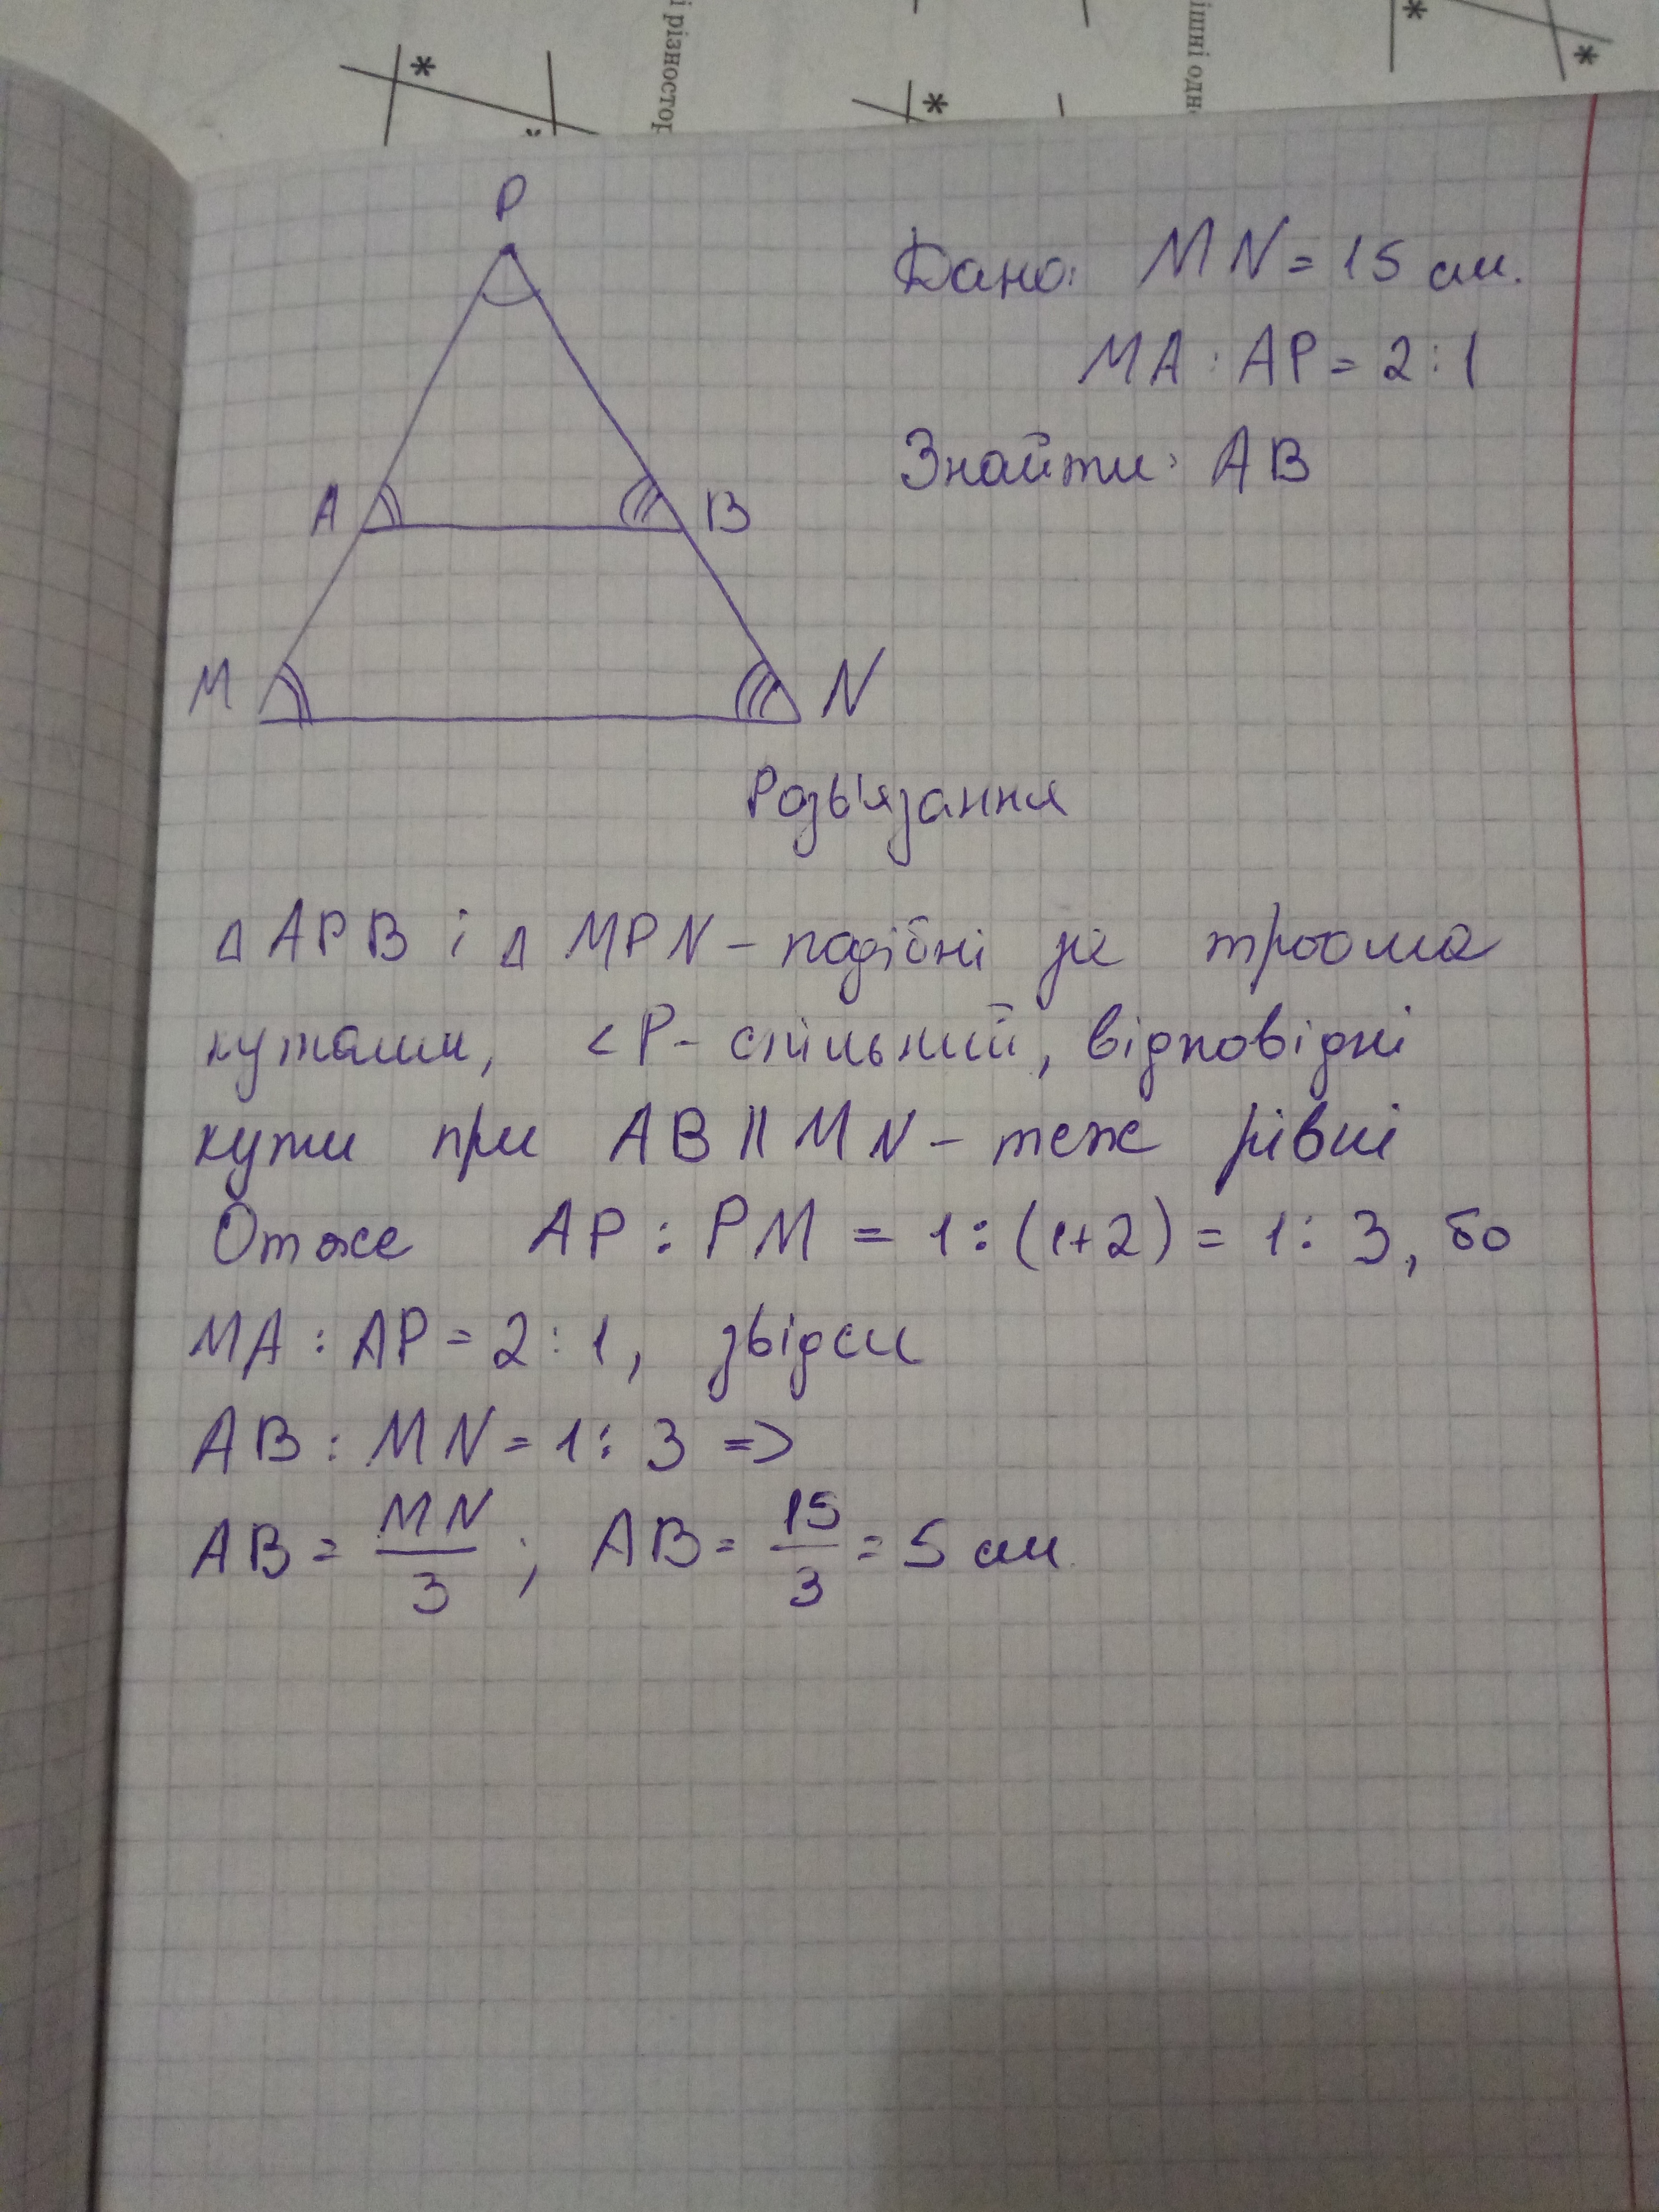 і різностор
ішні одн
*
*
*
*
P
Дано: MN = 15 см.
MA : AP = 2 : 1
Знайти: AB
A
B
M
N
Розв'язання
△ APB і △ MPN – подібні за трьома
кутами, <P – спільний, відповідні
кути при AB || MN – теж рівні
Отже AP : PM = 1 : (1+2) = 1 : 3, бо
MA : AP = 2 : 1, звідси
AB : MN = 1 : 3 =>
AB = MN/3 ; AB = 15/3 = 5 см